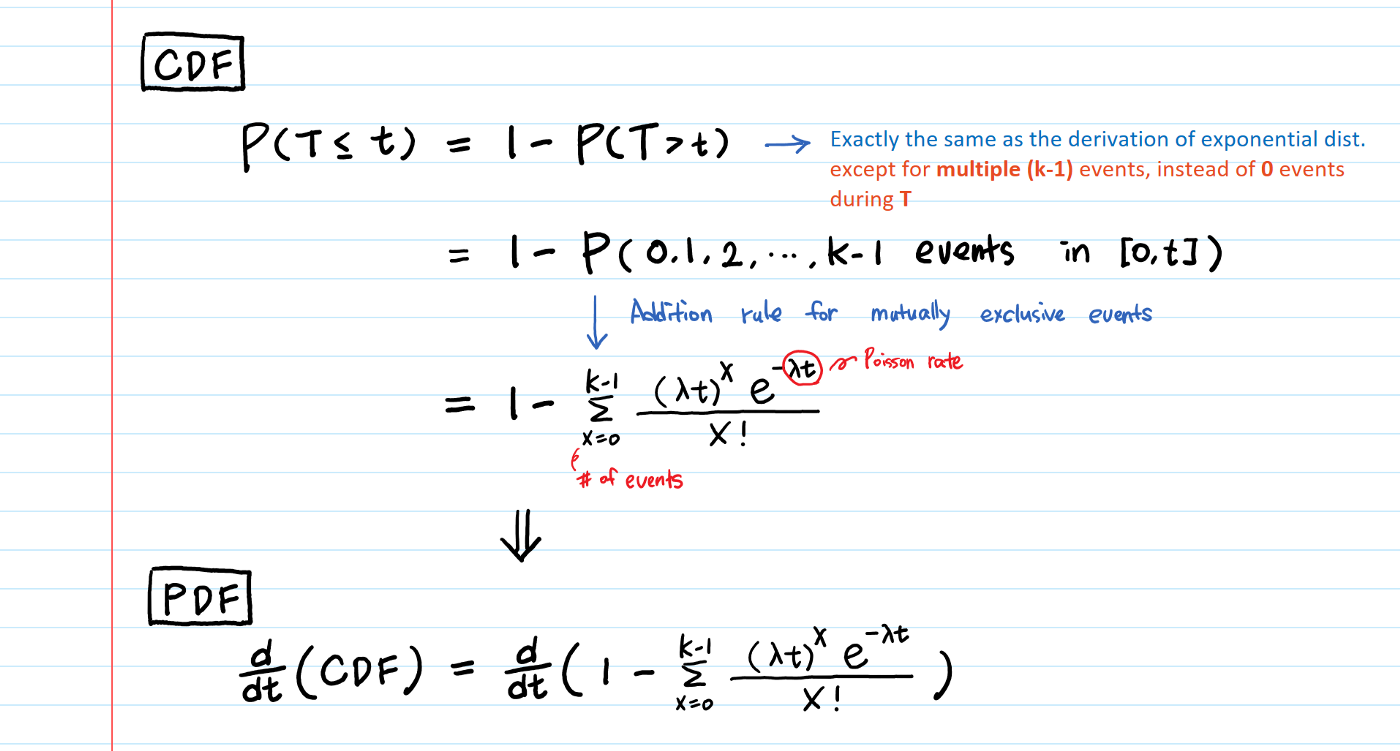 CDF
P(T ≤ t) = 1 - P(T > t) → Exactly the same as the derivation of exponential dist.
except for multiple (k-1) events, instead of 0 events
during T
= 1 - P(0,1,2,...,k-1 events in [0,t])
↓ Addition rule for mutually exclusive events
= 1 - Σ_{x=0}^{k-1} (λt)^x e^{-λt} / x!
Poisson rate
# of events
⇓
PDF
d/dt (CDF) = d/dt (1 - Σ_{x=0}^{k-1} (λt)^x e^{-λt} / x!)